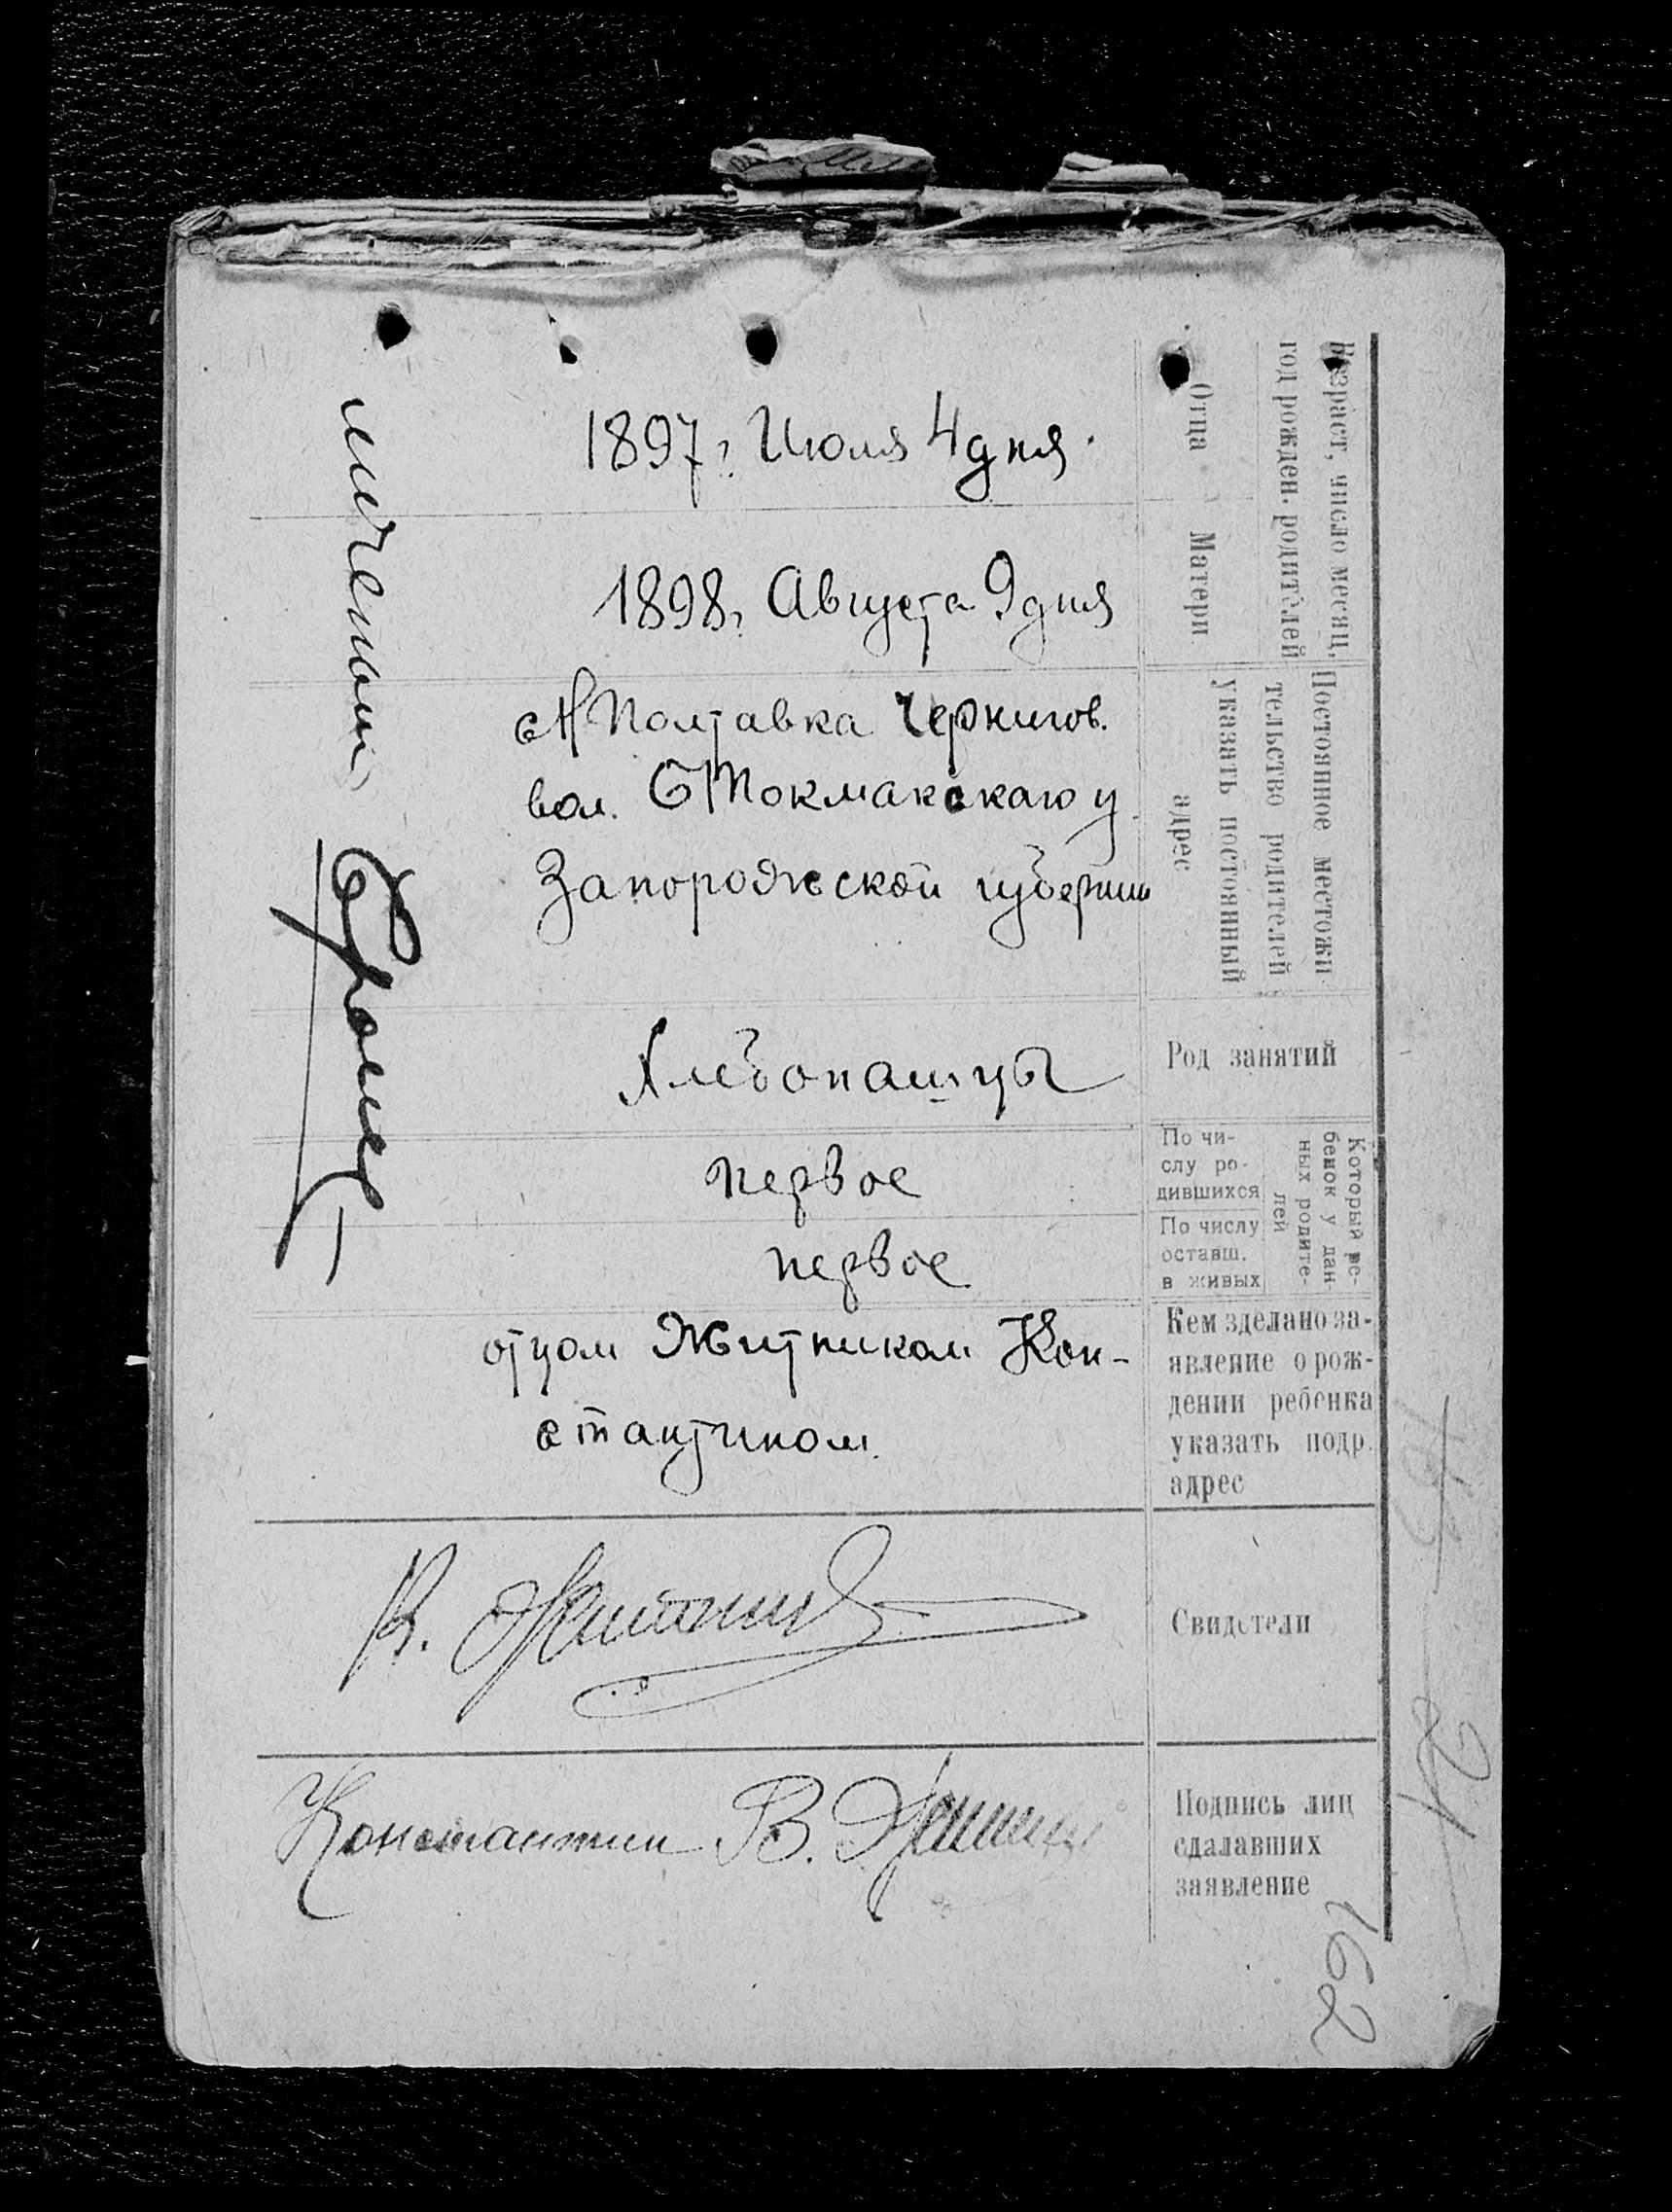 Возраст, число месяц,
год рожден. родителей
Отца
1897 г. Июля 4 дня.
Матери
1898 г. Августа 9 дня
Постоянное местожи
тельство родителей
указать постоянный
адрес
с Н Полтавка Чернигов.
вол. Б Токмакскаго у.
Запорожской губернии
Род занятий
Хлебопашцы
Который ре-
бенок у дан-
ных родите-
лей
По чи-
слу ро-
дившихся
первое
По числу
оставш.
в живых
первое
Кем зделано за-
явление о рож-
дении ребенка
указать подр.
адрес
отцом Житником Кон-
стантином.
Свидетели
К. Житник
Подпись лиц
сдалавших
заявление
Константин В. Житник
162